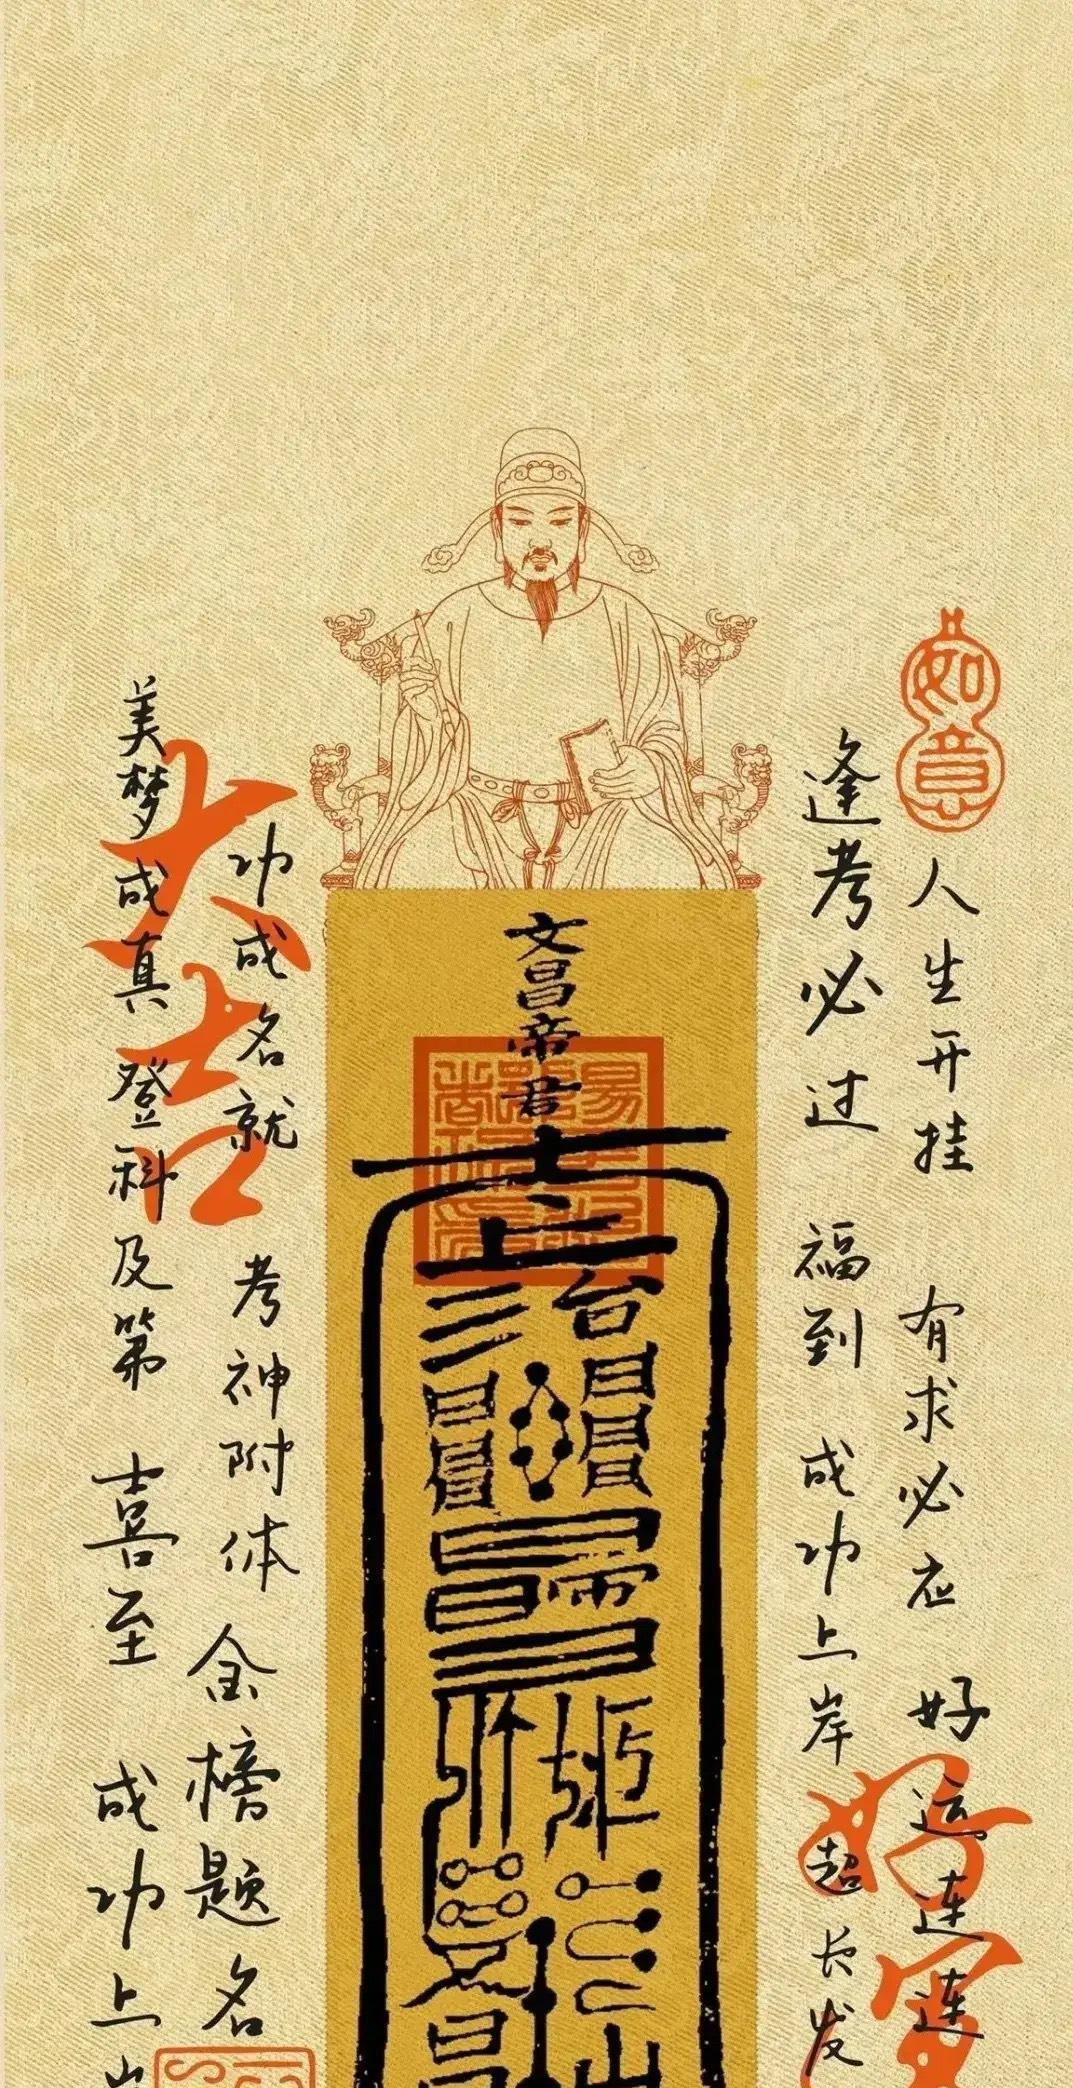 如意
人生开挂 有求必应 好运连连
逢考必过 福到 成功上岸 超长发
好运
文昌帝君
台
功成名就 考神附体 金榜题名
大吉
美梦成真 登科及第 喜至 成功上